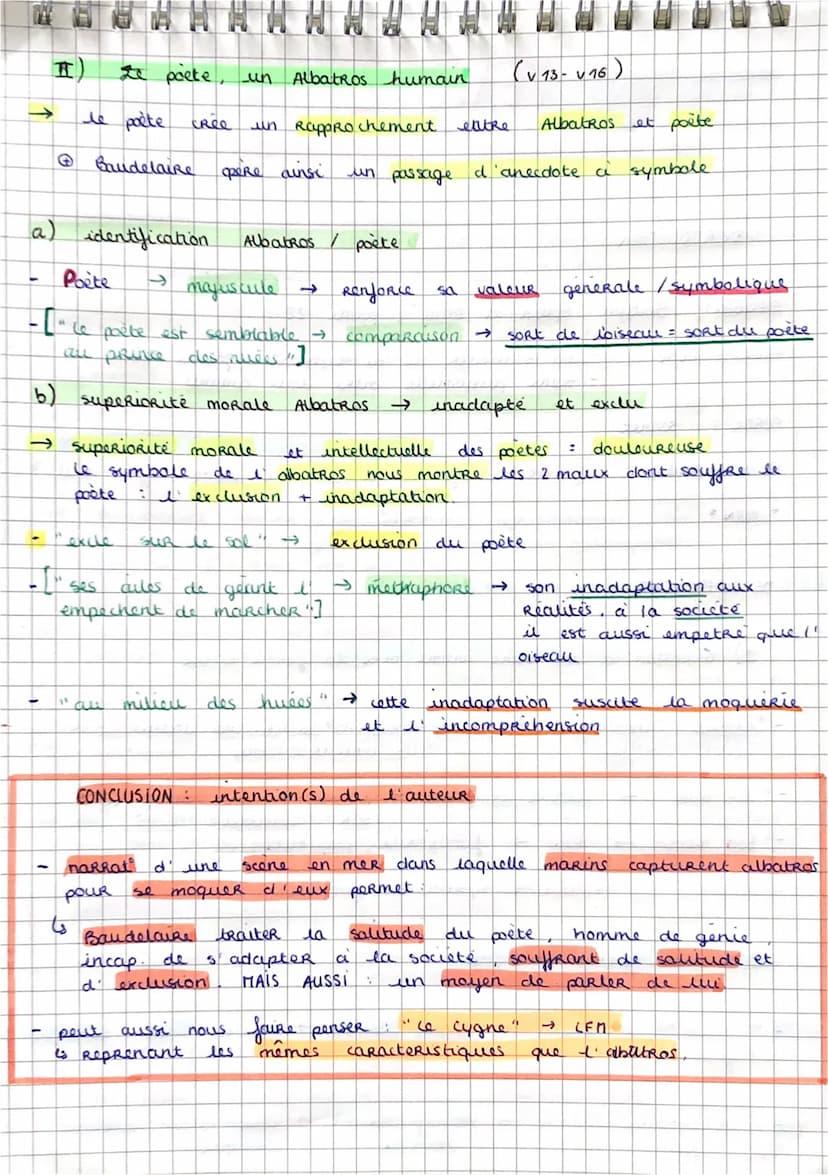 II) Le poète, un Albatros humain (v 13 - v 16)
→ le poète crée un rapprochement entre Albatros et poète
⊕ Baudelaire opère ainsi un passage d'anecdote à symbole
a) identification Albatros / poète
- Poète → majuscule → renforce sa valeur générale / symbolique
- ["le poète est semblable → comparaison → sort de l'oiseau = sort du poète
au prince des nuées"]
b) superiorité morale Albatros → inadapté et exclu
→ superiorité morale et intellectuelle des poètes = douloureuse
le symbole de l'albatros nous montre les 2 maux dont souffre le
poète : l'exclusion + inadaptation.
- "exilé sur le sol" → exclusion du poète
- ["ses ailes de géant l' → métraphore → son inadaptation aux
empechent de marcher"] Réalités, à la société
il est aussi empetré que l'
oiseau
- "au milieu des huées" → cette inadaptation suscite la moquerie
et l'incompréhension
CONCLUSION : intention(s) de l'auteur
- narrat° d'une scène en mer dans laquelle marins capturent albatros
pour se moquer d'eux permet :
↳ Baudelaire traiter la solitude du poète, homme de génie,
incap. de s'adapter à la société, souffrant de solitude et
d'exclusion. MAIS AUSSI : un moyen de parler de lui
- peut aussi nous faire penser : "Le cygne" → LFM
↳ reprenant les mêmes caractéristiques que l'albatros.